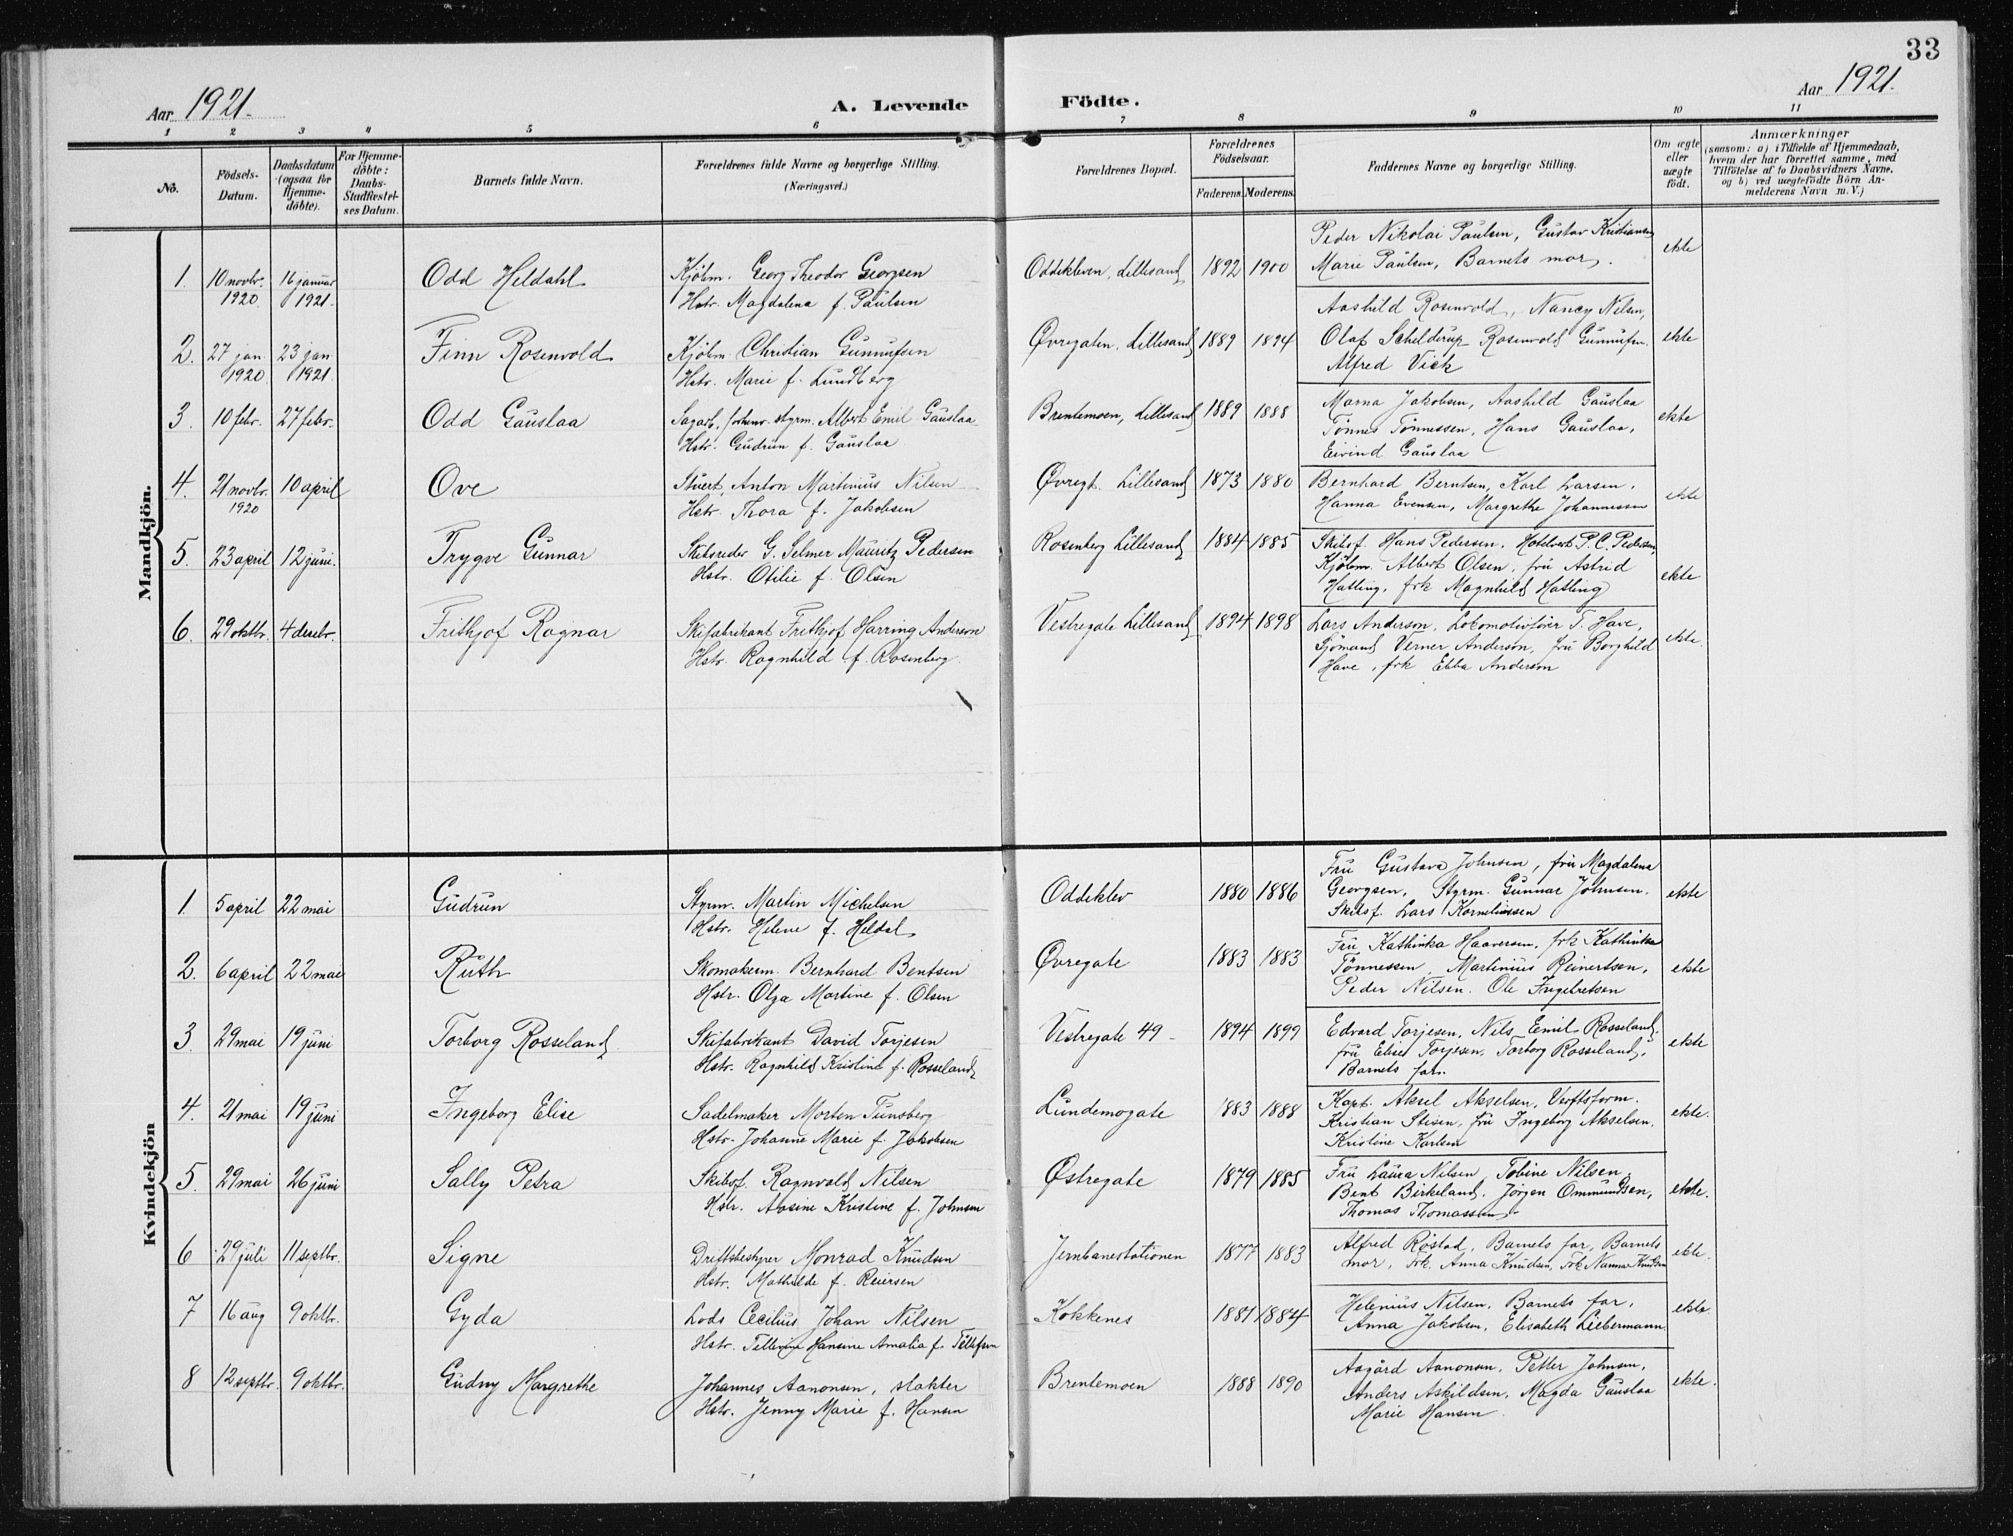 33
Aar 1921.
A. Levende Födte.
Aar 1921.
1 2 3 4 5 6 7 8 9 10 11
No.
Födsels-
Datum.
Daabsdatum
(ogsaa for
Hjemme-
döbte).
For Hjemme-
döbte:
Daabs-
Stadfæstel-
ses Datum.
Barnets fulde Navn.
Forældrenes fulde Navne og borgerlige Stilling.
(Næringsvei.)
Forældrenes Bopæl.
Forældrenes
Födselsaar.
Faderens. Moderens.
Faddernes Navne og borgerlige Stilling.
Om ægte
eller
uægte
födt.
Anmærkninger
(saasom: a) i Tilfælde af Hjemmedaab,
hvem der har forrettet samme, med
Tilföielse af to Daabsvidners Navne,
og b) ved uægtefödte Börn An-
melderens Navn m. V.)
Mandkjön.
1. 10 novbr. 1920 16 januar 1921. Odd Heldahl
Kjøbm. Georg Theodor Georgsen
Hstr. Magdalena f. Paulsen
Oddekleven, Lillesand 1892 1900
Peder Nikolai Paulsen, Gustav Kristiansen
Marie Paulsen, Barnets mor.
ekte
2. 27 jan. 1920 23 jan 1921. Finn Rosenvold
Kjøbm. Christian Gunnufsen
Hstr. Marie f. Lundberg
Øvregaten, Lillesand 1889 1894
Aashild Rosenvold, Nancy Nilsen,
Olaf Schelderup Rosenvold Gunnufsen.
Alfred Vick
ekte
3. 10 febr. 27 febr. Odd Gauslaa
Sagarb., forhenv. styrm. Albert Emil Gauslaa
Hstr. Gudrun f. Gauslaa
Brentemoen, Lillesand 1889 1888
Marna Jakobsen, Aashild Gauslaa
Tønnes Tønnessen, Hans Gauslaa,
Eivind Gauslaa
ekte
4. 21 novbr. 1920 10 april Ove
Stuert, Anton Martinius Nilsen
Hstr. Thora f. Jakobsen
Øvregt. Lillesand 1873 1880
Bernhard Berntsen, Karl Larsen,
Hanna Evensen, Margrethe Johannessen
ekte
5. 23 april 12 juni. Trygve Gunnar
Skibsreder G. Selmer Mauritz Pedersen
Hstr. Otilie f. Olsen
Rosenberg Lillesand 1884 1885
Skibsf. Hans Pedersen. Hotelvert P. C. Pedersen
Kjøbm. Albert Olsen, fru Astrid
Hatling, frk Magnhild Hatling
ekte
6. 29 oktbr. 4 decbr. Frithjof Ragnar
Skifabrikant Frithjof Harring Anderson
Hstr. Ragnhild f. Rosenberg.
Vestregate Lillesand 1894 1898
Lars Anderson, Lokomotivfører T. Have,
Sjømand Verner Anderson, fru Borghild
Have, frk Ebba Anderson
ekte.
Kvindekjön
1. 5 april 22 mai Gudrun
Styrm. Martin Michelsen
Hstr. Helene f. Heldal
Oddeklev 1880 1886
Fru Gustava Johnsen, fru Magdalena
Georgsen, Styrm. Gunnar Johnsen.
Skibsf. Lars Korneliussen
ekte
2. 6 april 22 mai Ruth
Skomakerm. Bernhard Bentsen
Hstr. Olga Martine f. Olsen
Øvregate 1883 1883
Fru Kathinka Haaversen, frk Kathinka
Tønnessen, Martinius Reinertsen,
Peder Nilsen. Ole Ingebretsen
ekte
3. 29 mai 19 juni Torborg Rosseland
Skifabrikant David Torjesen
Hstr. Ragnhild Kristine f. Rosseland
Vestregate 49 - 1894 1899
Edvard Torjesen, Nils Emil Rosseland,
fru Elise Torjesen, Torborg Rosseland,
Barnets far.
ekte
4. 21 mai 19 juni Ingeborg Elise
Sadelmaker Morten Tunsberg
Hstr. Johanne Marie f. Jakobsen
Lundemogate 1883 1888
Kapt. Aksel Akselsen, Verftsform.
Kristian Stisen, fru Ingeborg Akselsen,
Kristine Karlsen
ekte.
5. 29 mai 26 juni Sally Petra
Skibsf. Ragnvald Nilsen
Hstr. Aasine Kristine f. Johnsen
Østregate 1879 1885
Fru Laura Nilsen, Tobine Nilsen,
Bent Birkeland, Jørgen Ommundsen,
Thomas Thomassen.
ekte.
6 29 juli 11 septbr. Signe
Driftsbestyrer Monrad Knudsen
Hstr. Mathilde f. Reiersen
Jernbanestationen 1877 1883
Alfred Røstad, Barnets far, Barnets
mor, Frk. Anna Knudsen, Frk Nanna Knudsen
ekte.
7 16 aug 9 oktbr. Gyda
Lods Cecilius Johan Nilsen
Hstr. Tellevine Hansine Amalia f. Tellefsen
Kokkenes 1881 1884
Helenius Nilsen, Barnets far,
Anna Jakobsen, Elisabeth Liebermann.
ekte
8 12 septbr. 9 oktbr. Gudny Margrethe
Johannes Aanonsen, slakter
Hstr. Jenny Marie f. Hansen
Brentemoen 1888 1890
Aagård Aanonsen, Petter Johnsen,
Anders Askildsen, Magda Gauslaa
Marie Hansen.
ekte.